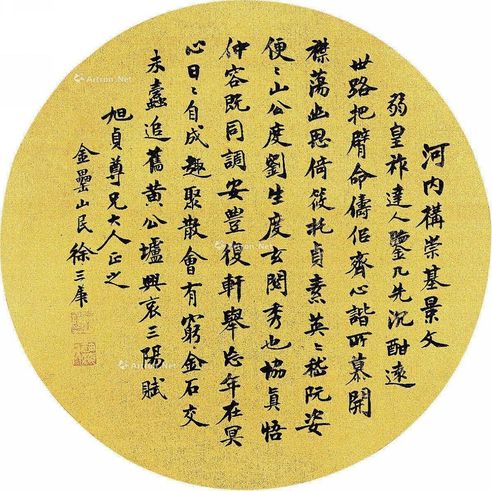 河内構崇基景文
弱皇祚達人鑒几先沉酣遠
世路把臂命儔侶齊心諧所慕開
襟蕩幽思倚筱托貞素英〻嵇阮姿
便〻山公度劉生度玄閱秀也協真悟
仲容既同調安豐後軒舉忘年在冥
心日〻自成趣聚散會有窮金石交
未蠹追舊黄公壚興哀三陽賦
旭貞尊兄大人正之
金罍山民徐三庚
Artron.Net
Artron.Net
Artron.Net